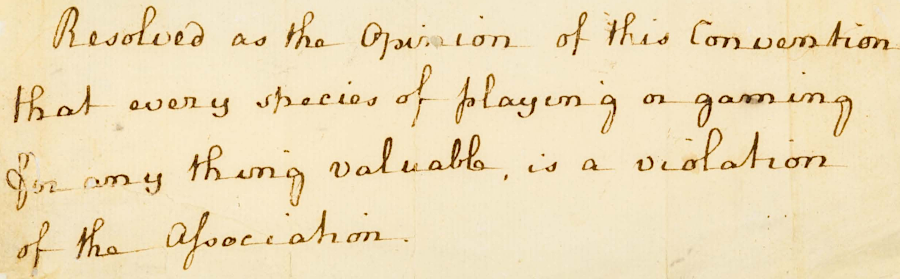 Resolved as the Opinion of this Convention
that every species of playing or gaming
for any thing valuable, is a violation
of the Aſsociation.